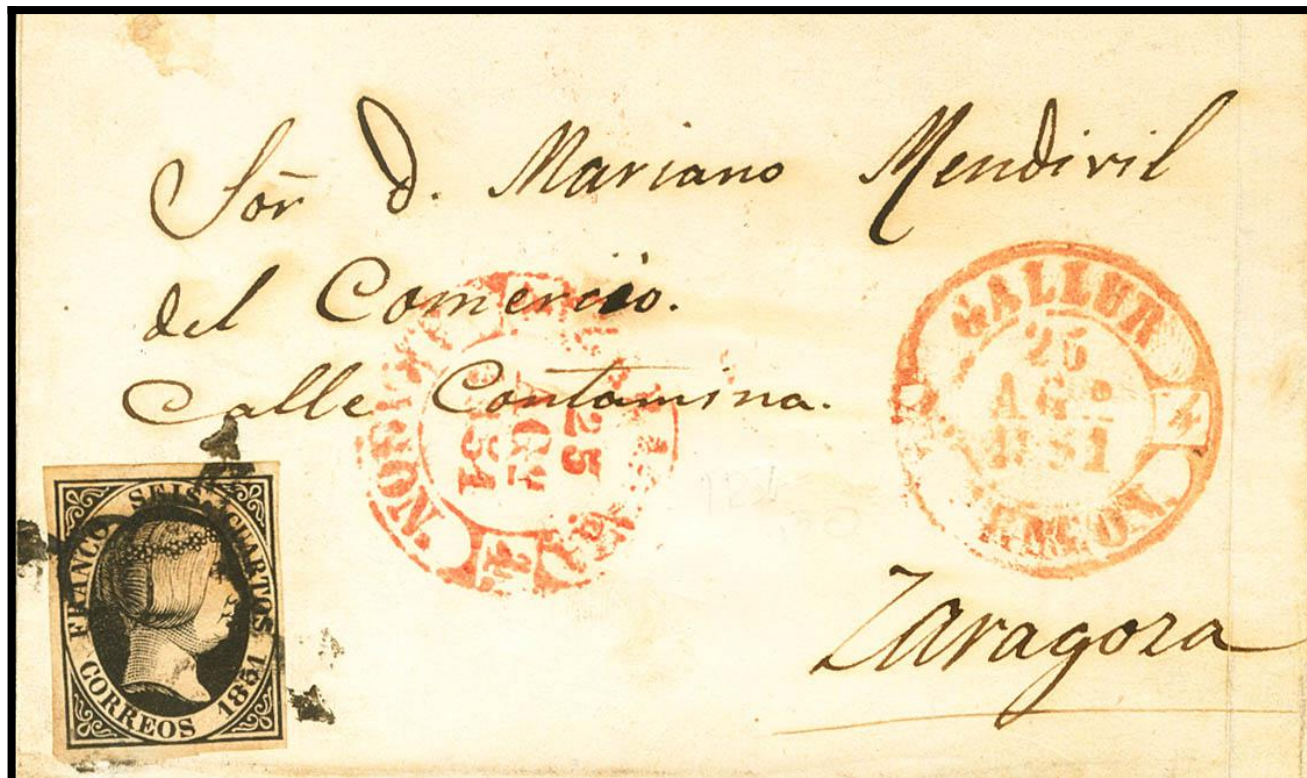 Sor̃ D. Mariano Mendivil
del Comercio.
Calle Contamina.
Zaragoza
GALLUR
25
AGº
1851
4
25
AGº
1851
FRANCO SEIS CUARTOS
CORREOS 1851